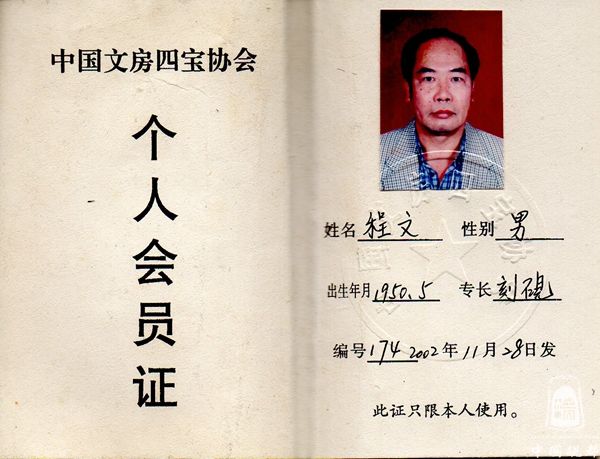 中国文房四宝协会
个人会员证
姓名 程文 性别 男
出生年月 1950.5 专长 刻砚
编号 174 2002年11月28日发
此证只限本人使用。